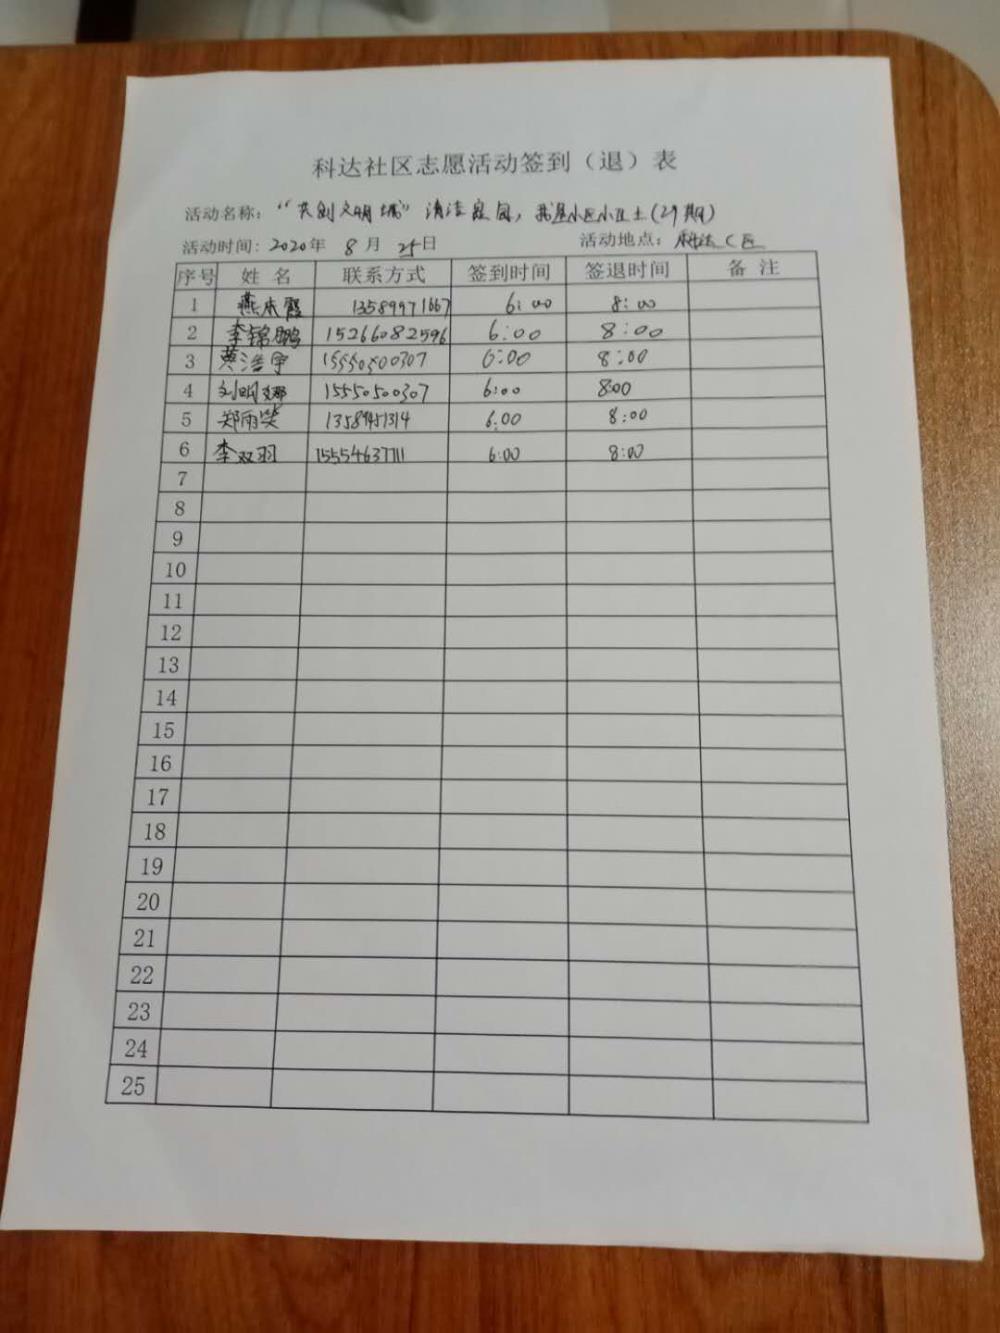 科达社区志愿活动签到（退）表
活动名称：“共创文明城”清洁家园，我是小区小卫士(29期)
活动时间：2020年 8 月 25日 活动地点：科达C区
序号 姓 名 联系方式 签到时间 签退时间 备 注
1 13589971667 6:00 8:00
2 李锦鹏 15266082596 6:00 8:00
3 黄浩宇 15550500307 6:00 8:00
4 刘明娜 15550500307 6:00 8:00
5 郑雨笑 6:00 8:00
6 李双羽 15554637711 6:00 8:00
7
8
9
10
11
12
13
14
15
16
17
18
19
20
21
22
23
24
25